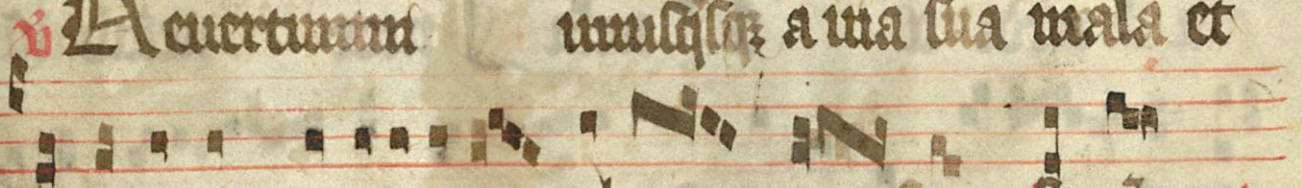 v Reuertimini unusqsqz a uia sua mala et